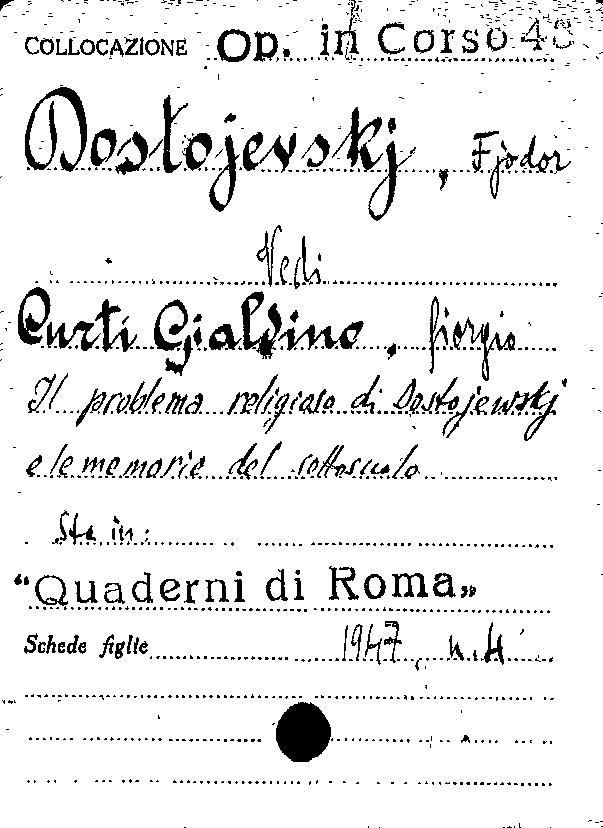 COLLOCAZIONE Op. in Corso 48
Dostojevskj, Fjòdor
Vedi
Curti Gialdino, Giorgio
Il problema religioso di Dostojewskj
e le memorie del sottosuolo
Sta in:
“Quaderni di Roma„
Schede figlie 1947, n. 4